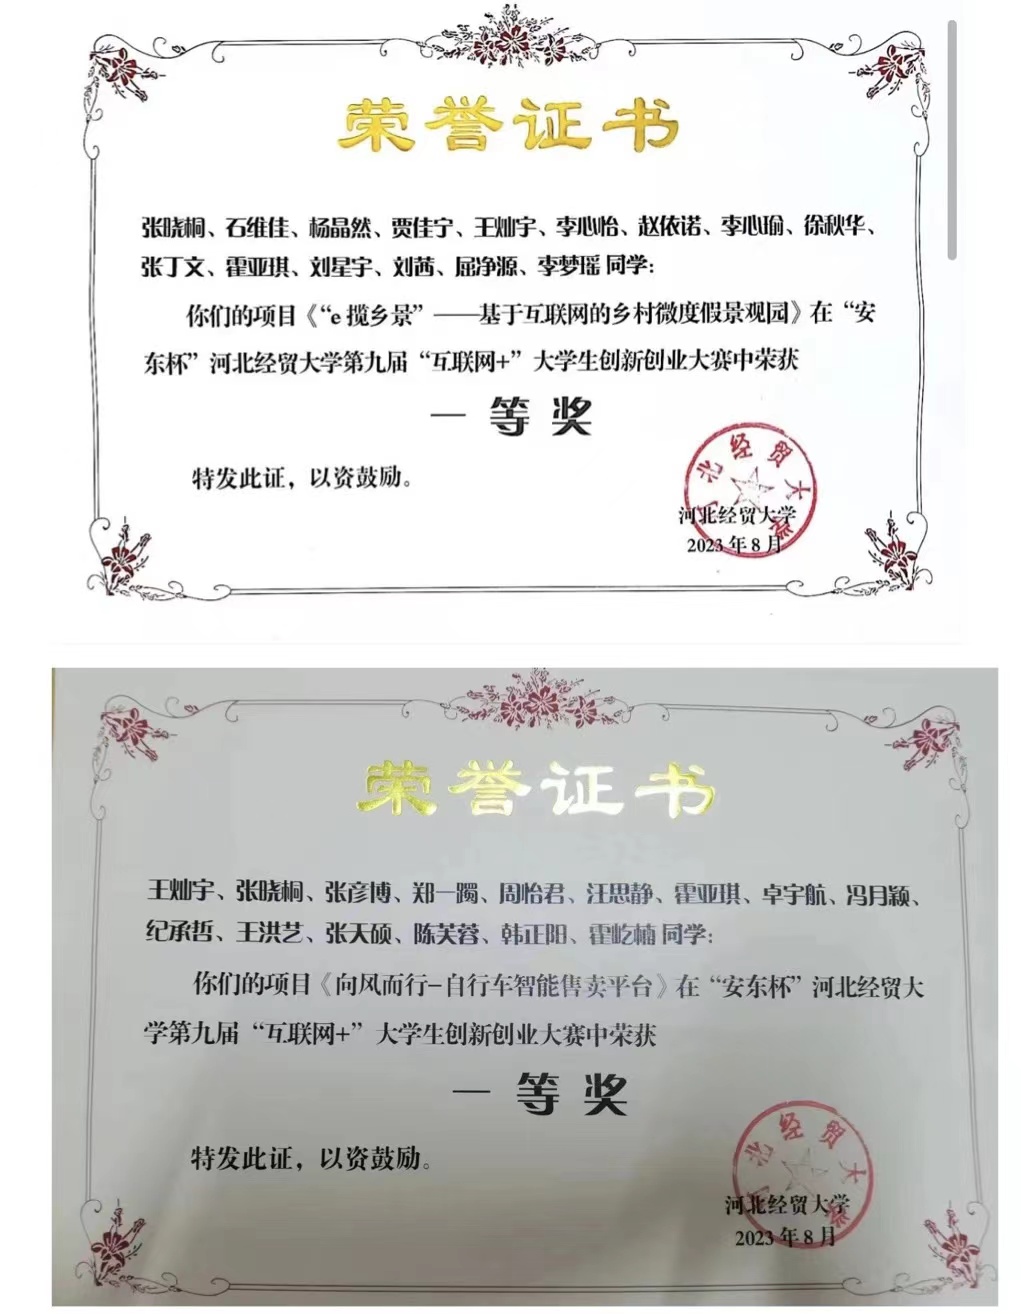 荣誉证书
张晓桐、石维佳、杨晶然、贾佳宁、王灿宇、李心怡、赵依诺、李心瑜、徐秋华、
张丁文、霍亚琪、刘星宇、刘茜、屈净源、李梦瑶 同学:
你们的项目《“e 揽乡景”——基于互联网的乡村微度假景观园》在“安
东杯”河北经贸大学第九届“互联网+”大学生创新创业大赛中荣获
一等奖
特发此证，以资鼓励。
河北经贸大学
河北经贸大学
2023 年 8 月
荣誉证书
王灿宇、张晓桐、张彦博、郑一躅、周怡君、汪思静、霍亚琪、卓宇航、冯月颖、
纪承哲、王洪艺、张天硕、陈芙蓉、韩正阳、霍屹楠 同学:
你们的项目《向风而行-自行车智能售卖平台》在“安东杯”河北经贸大
学第九届“互联网+”大学生创新创业大赛中荣获
一等奖
特发此证，以资鼓励。
河北经贸大学
河北经贸大学
2023 年 8 月